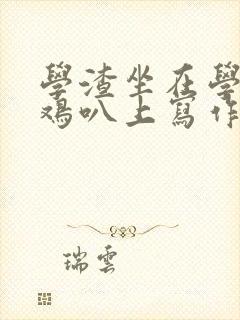 學渣坐在學
鸡叭上寫作
瑞雲